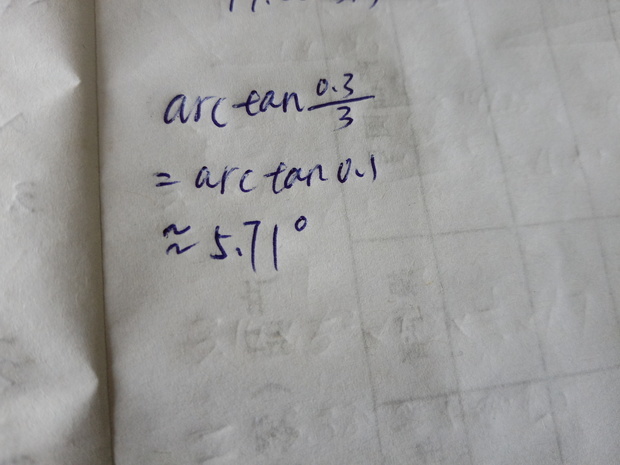 arctan 0.3/3
= arctan 0.1
≈ 5.71°